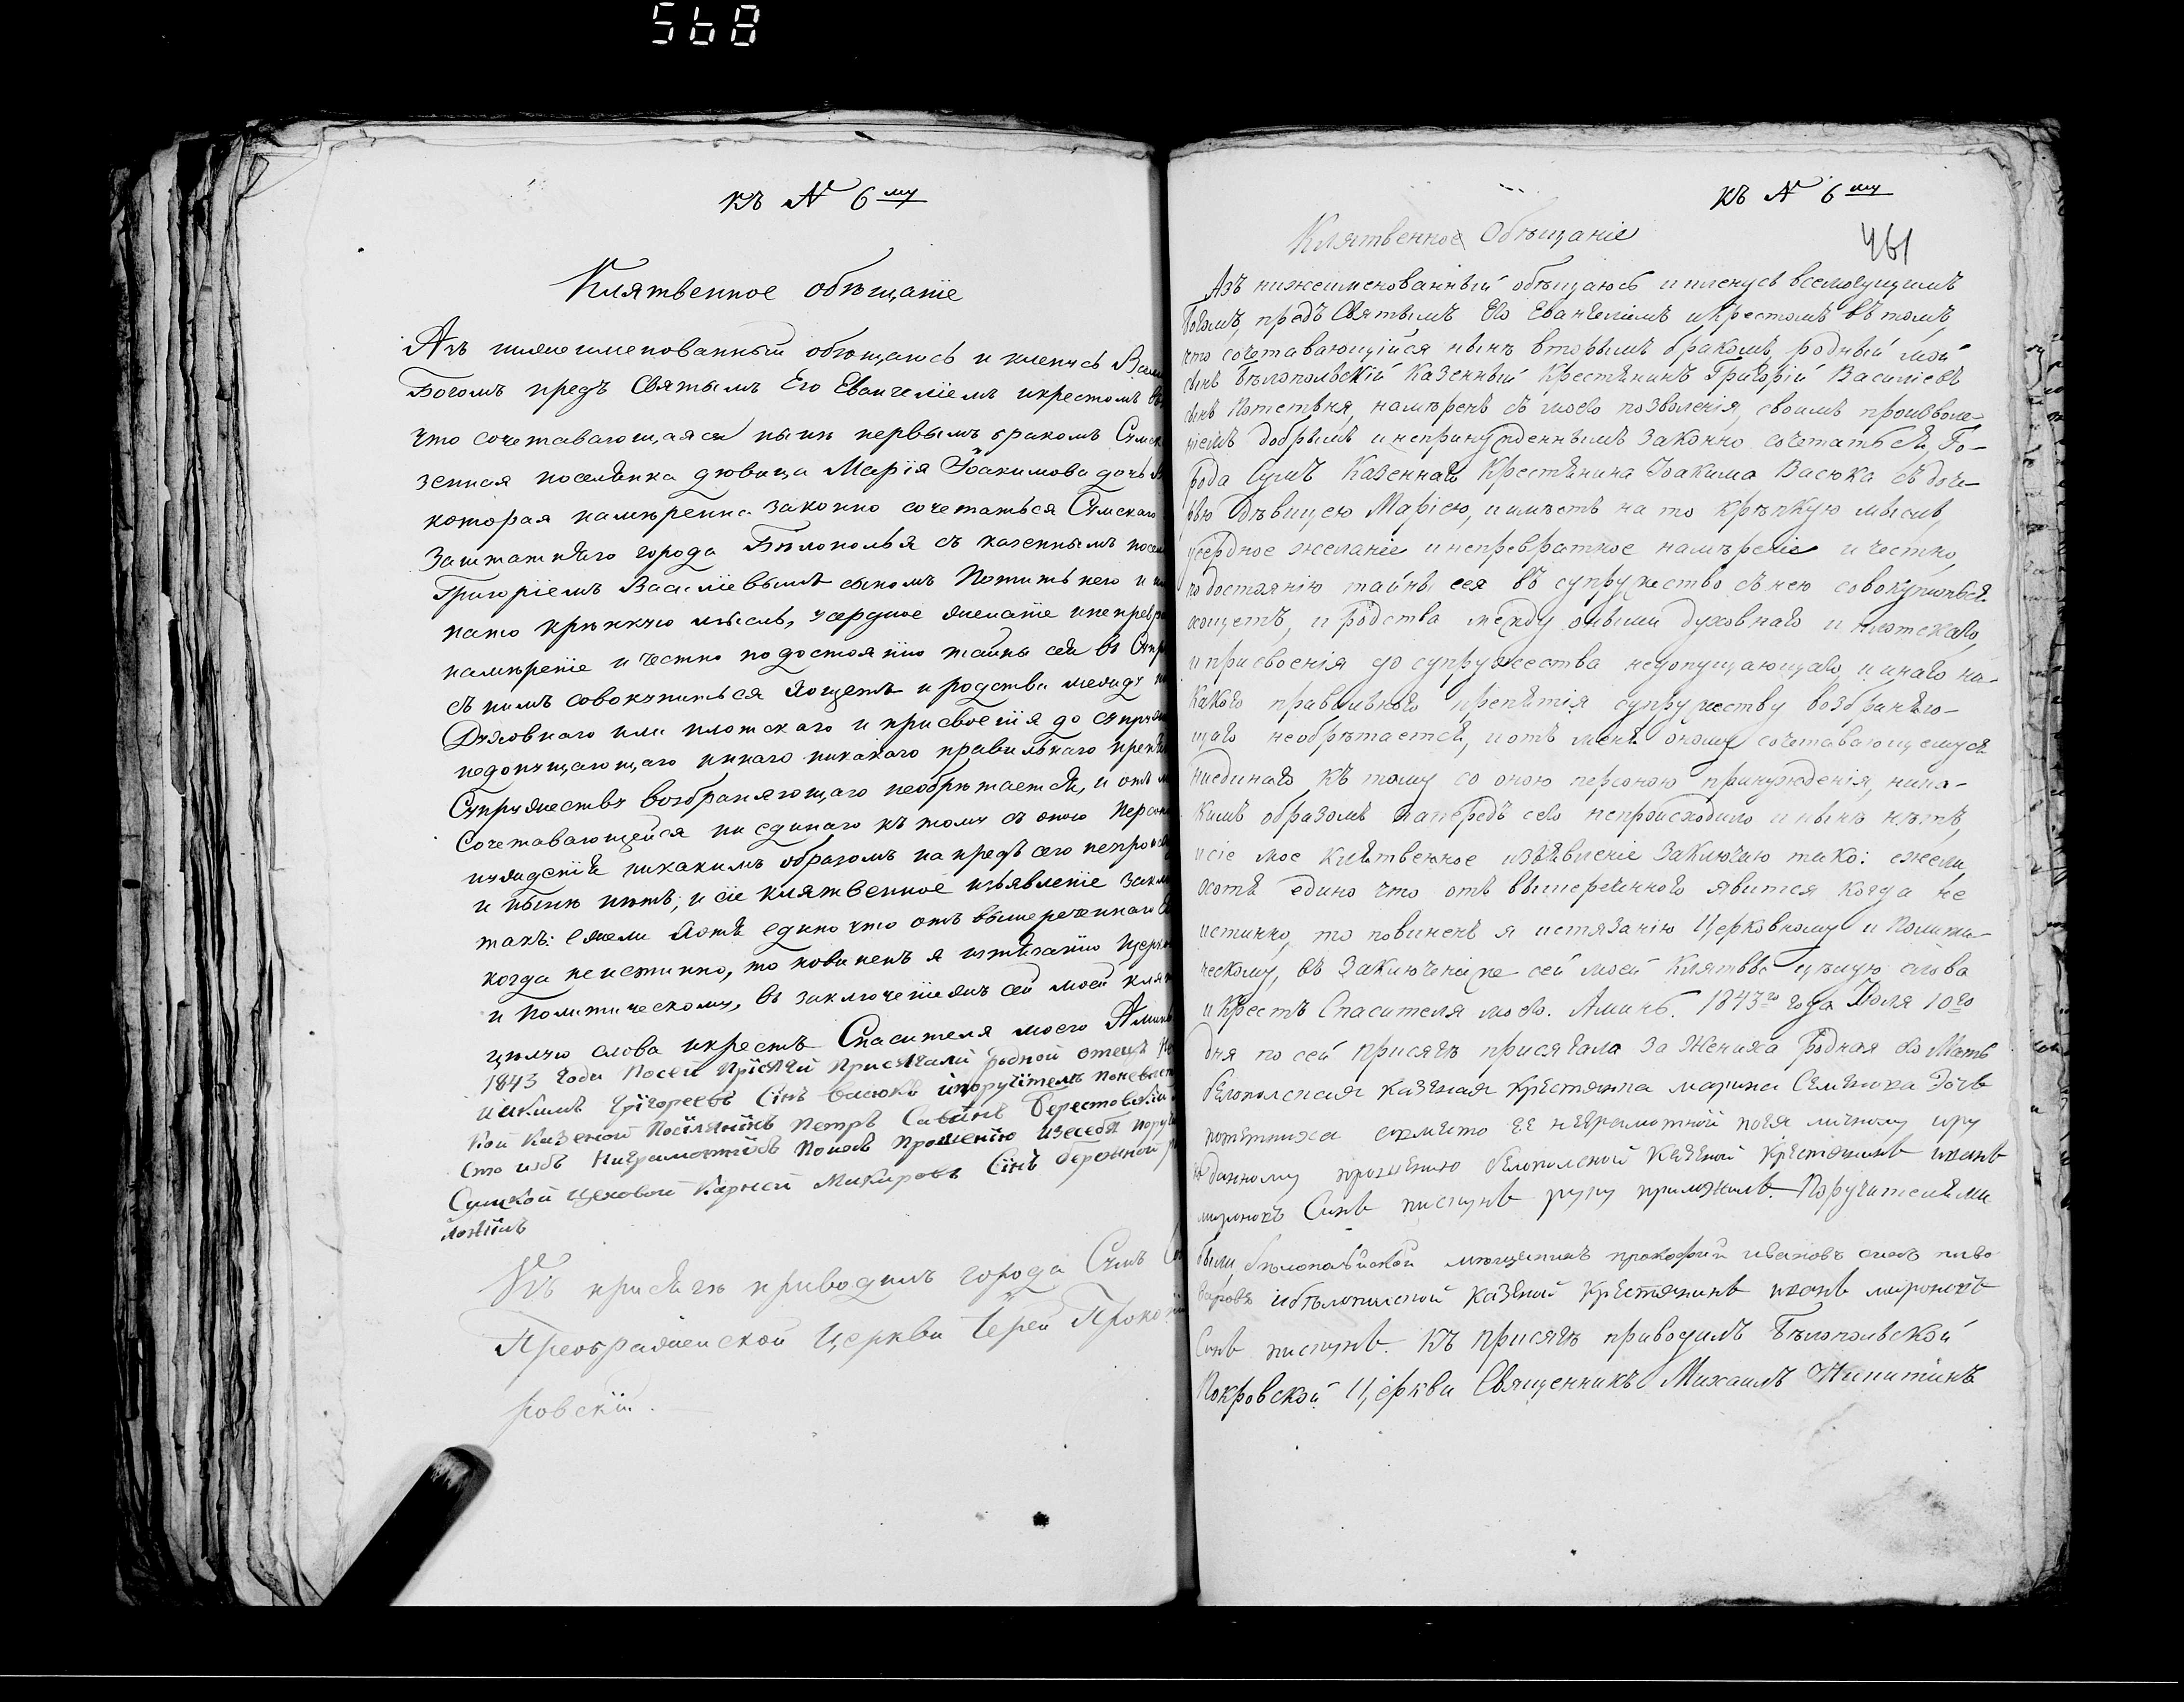 568
къ № 6му
Клятвенное обѣщанїе
Азъ нижеименованный обѣщаюсь и кленусь
Богомъ предъ Святымъ Его Евангелїемъ икрестомъ
что сочетавающаяся нынѣ первымъ бракомъ
зенная поселянка дѣвица Марїя Іоакимова дочь
которая намѣренна законно сочетаться Сумскаго
Заштатнаго города Бѣлополья съ казеннымъ
Григорїемъ Василїевымъ сыномъ
нато крѣпкую мысль, усердное желанїе
намѣренїе и честно подостоянию тайны сея въ
съ нимъ совокупиться хощетъ и родства между
Духовнаго или плотскаго и присвоенїя до
недопущающаго инаго никакаго правильнаго
Супружеству возбраняющаго необрѣтается, и отъ
Сочетавающейся ни единаго къ тому съ оною
нужденїя никакимъ образомъ напредъ сего
и нынѣ нѣтъ, и сїе клятвенное изъявленїе
такъ: ежели хотя едино что отъ вышереченнаго
когда неистинно, то повиненъ я истязанїю
и Политическому, въ заключенїижъ сей моей
цѣлую слова икрестъ Спасителя моего Аминь
1843 года Посей Прїсяги Присягали родной отецъ
Григоревъ Сїнъ Васюкъ ипоручїтель
кой Казеной Петръ Савинъ Берестовскїй
прошенїю
Сумской Цеховой Карней Сїнъ
Къ присягѣ приводилъ города Сумъ
Преображенской Церкви Іерей
ровскїй.
къ № 6му
461
Клятвенное Обѣщаніе
Азъ нижеименованный обѣщаюсь и кленусь всемогущимъ
Богомъ, предъ Святымъ Его Евангелїемъ икрестомъ въ томъ,
что сочетавающїйся нынѣ вторымъ бракомъ, родный мой
сынъ Бѣлопольскїй Казенный Крестьянинъ Григорїй Василїевъ
сынъ намѣренъ съ моего позволенїя, своимъ произволе-
нїемъ добрымъ инепринужденнымъ законно сочетаться, Го-
рода Сумъ Казеннаго Крестьянина Іоакима Васюка съ доче-
рью Дѣвицею Марїею, иимѣетъ на то крѣпкую мысль,
усердное желанїе инепревратное намѣренїе и честно,
подостоянію тайны сея въ супружество съ нею совокупиться
хощетъ, и родства между оными духовнаго и плотскаго,
иприсвоенїя до супружества недопущающаго, и инаго ни-
какого правильнаго препятія супружеству возбраняю-
щаго необрѣтается, иотъ меня оному сочетавающемуся
ниединаго къ тому со оною персоною принужденїя, ника-
кимъ образомъ напередъ сего непроисходило инынѣ нѣтъ,
исіе мое клятвенное изъявленіе заключаю тако: ежели,
хотя едино что отъ вышереченнаго явится когда не
истинно, то повиненъ я истязанію Церковному и Полити-
ческому, въ заключенїиже сей моей клятвы цѣлую слова
икрестъ Спасителя моего. Аминь. 1843го года Іюля 10го
дня по сей присягѣ присягала за Жениха родная его Мать
белополская казеная крестянка марина Семенова дочь
неграмотной
данному прошению белополской казеной крестянинъ иванъ
мироновъ Синъ руку приложилъ. Поручителями
были, бѣлополской мещанинъ прокофий ивановъ синъ пиво
варовъ ибѣлополской казеной крестянинъ иванъ мироновъ
Синъ Къ присягѣ приводилъ Бѣлопольской
Покровской Церкви Священникъ Михаилъ Никитинъ